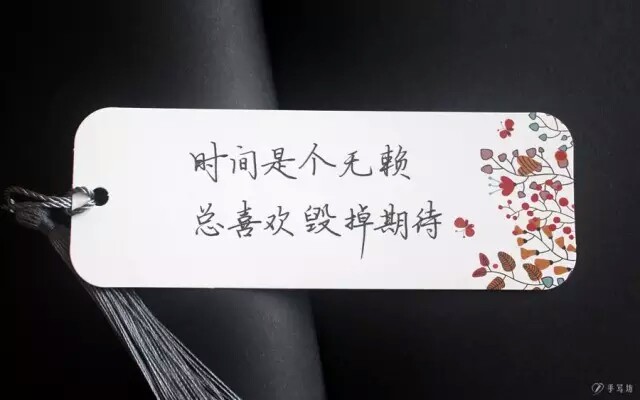 时间是个无赖
总喜欢毁掉期待
手写坊